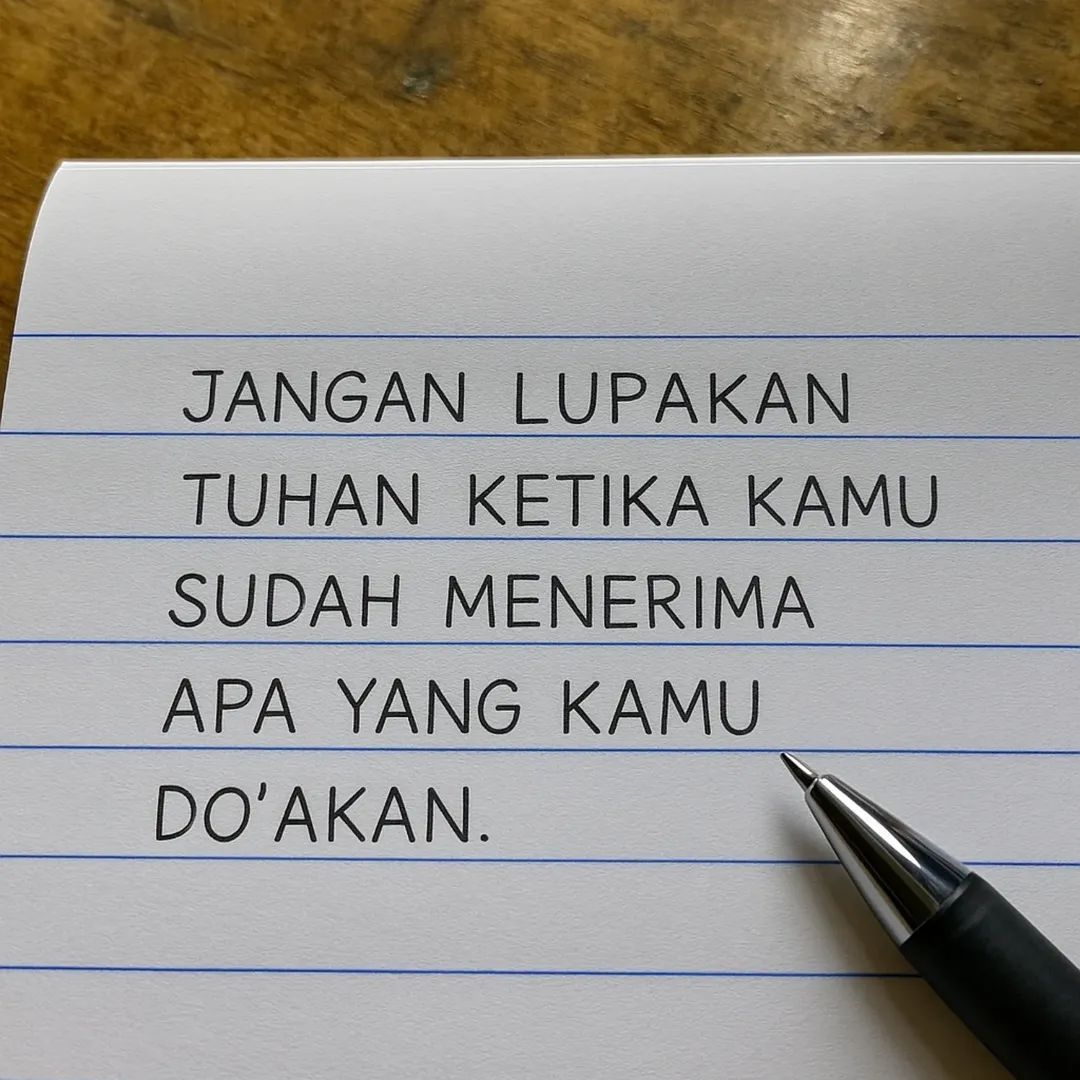 JANGAN LUPAKAN
TUHAN KETIKA KAMU
SUDAH MENERIMA
APA YANG KAMU
DO'AKAN.